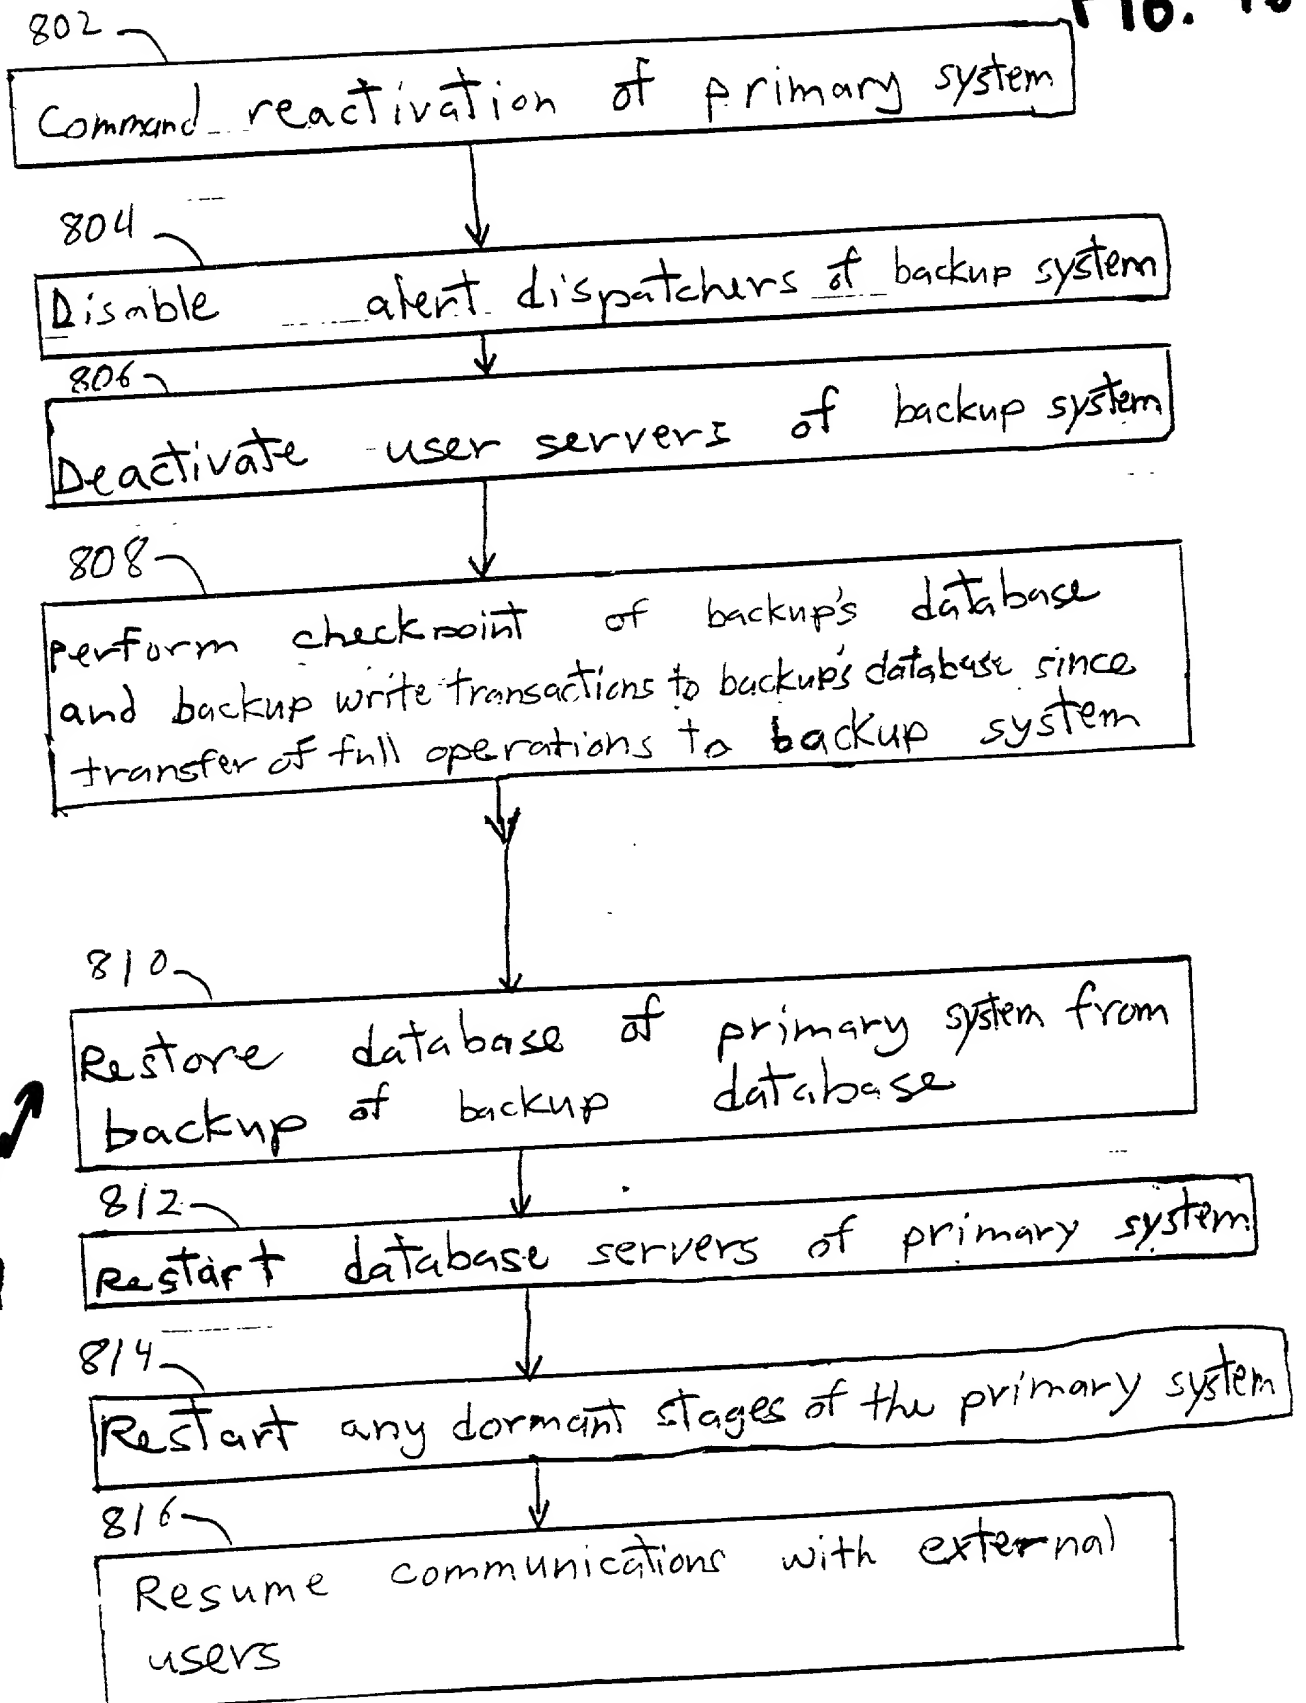 FIG.
802
Command reactivation of primary system
804
Disable alert dispatchers of backup system
806
Deactivate user servers of backup system
808
perform checkpoint of backup's database
and backup write transactions to backup's database since
transfer of full operations to backup system
810
Restore database of primary system from
backup of backup database
812
Restart database servers of primary system
814
Restart any dormant stages of the primary system
816
Resume communications with external
users